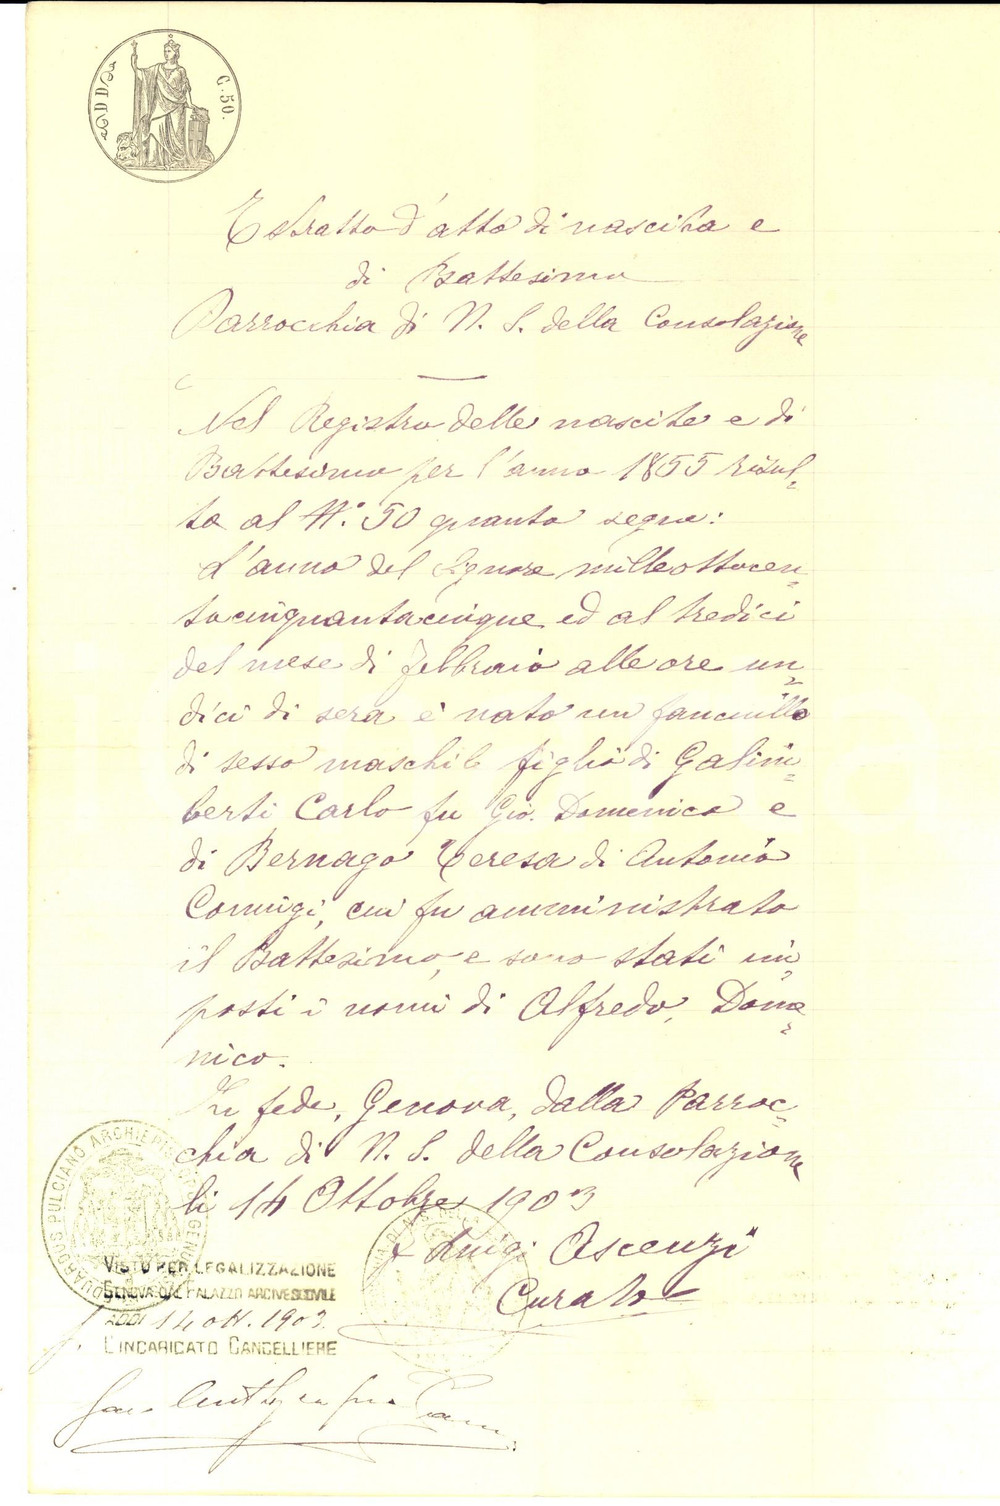 C. 50.
Estratto d'atto di nascita e
di Battesimo
Parrocchia di N. S. della Consolazione
Nel Registro delle nascite e di
Battesimo per l'anno 1855 risul-
ta al N.° 50 quanto segue:
L'anno del Signore milleottocen-
tocinquantacinque ed al tredici
del mese di Febbraio alle ore un-
dici di sera è nato un fanciullo
di sesso maschile figlio di Galim-
berti Carlo fu Gio. Domenico e
di Bernago Teresa di Antonio
Coniugi, cui fu amministrato
il Battesimo, e sono stati im-
posti i nomi di Alfredo, Dome-
nico.
In fede, Genova, dalla Parroc-
chia di N. S. della Consolazione
li 14 Ottobre 1903
Luigi Ascenzi
Curato
EDUARDUS PULCIANO ARCHIEP
VISTO PER LEGALIZZAZIONE
GENOVA DAL PALAZZO ARCIVESCOVILE
ADDI 14 ott. 1903.
L'INCARICATO CANCELLIERE